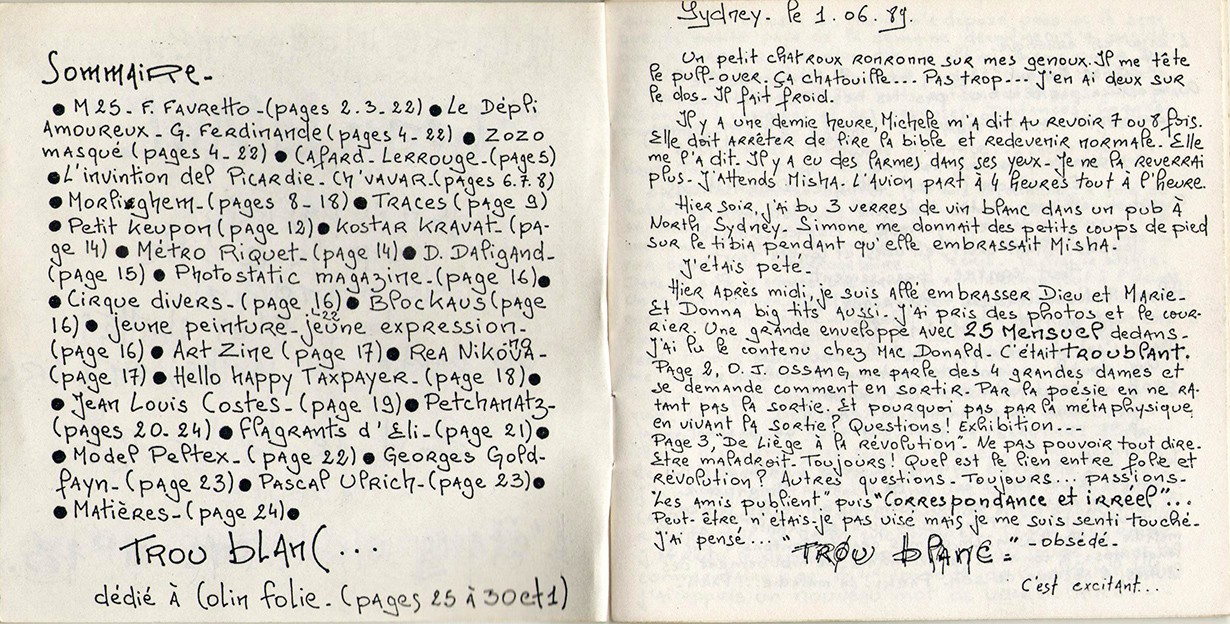 Sommaire-
● M25- F. Favretto-(pages 2.3-22) ● Le Dépli
Amoureux- G. Ferdinande (pages 4-22) ● Zozo
masqué (pages 4-23) ● Cafard- Lerrouge-(page 5)
● L'invintion del Picardie- Ch'vavar-(pages 6.7.8)
● Morlieghem-(pages 8-18) ● Traces (page 9)
● Petit Keupon (page 12) ● Kostar Kravat-(pa-
ge 14) ● Métro Riquet-(page 14) ● D. Daligand-
(page 15) ● Photostatic magazine-(page 16) ●
● Cirque divers-(page 16) ● Blockaus (page
16) ● jeune peinture-jeune expression-
(page 16) ● Art Zine (page 17) ● Rea Nikonova-
(page 17) ● Hello happy Taxpayer-(page 18) ●
● Jean Louis Costes-(page 19) ● Petchanatz-
(pages 20-24) ● Flagrants d'Eli-(page 21) ●
● Model Peltex-(page 22) ● Georges Gold-
fayn-(page 23) ● Pascal Ulrich-(page 23) ●
● Matières-(page 24) ●
TROU blanc...
dédié à Colin folie-(pages 25 à 30 et 1)
Sydney- le 1.06.89.
Un petit chat roux ronronne sur mes genoux. Il me tête
le pull-over. Ça chatouille... Pas trop... J'en ai deux sur
le dos. Il fait froid.
Il y a une demie heure, Michele m'a dit au revoir 7 ou 8 fois.
Elle doit arrêter de lire la bible et redevenir normale. Elle
me l'a dit. Il y a eu des larmes dans ses yeux. Je ne la reverrai
plus. J'attends Misha. L'avion part à 4 heures tout à l'heure.
Hier soir, j'ai bu 3 verres de vin blanc dans un pub à
North Sydney. Simone me donnait des petits coups de pied
sur le tibia pendant qu'elle embrassait Misha.
J'étais pété.
Hier après midi, je suis allé embrasser Dieu et Marie-
Et Donna big tits aussi. J'ai pris des photos et le cour-
rier. Une grande enveloppe avec 25 Mensuel dedans.
J'ai lu le contenu chez Mac Donald. C'était troublant.
Page 2, O. J. Ossang, me parle des 4 grandes dames et
se demande comment en sortir. Par la poésie en ne ra-
tant pas la sortie. Et pourquoi pas par la métaphysique
en vivant la sortie? Questions! Exhibition...
Page 3, "De Liège à la révolution". Ne pas pouvoir tout dire.
Etre maladroit- Toujours! Quel est le lien entre folie et
révolution? Autres questions- Toujours... passions-
"Les Amis publient" puis "Correspondance et irréel"...
Peut-être n'étais-je pas visé mais je me suis senti touché-
J'ai pensé... "TROU blanc"- obsédé-
C'est excitant...